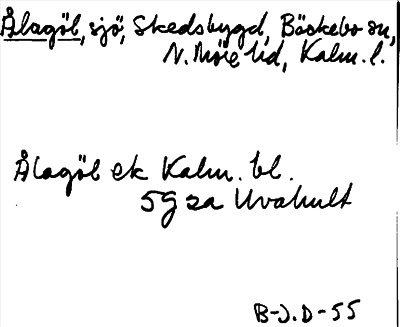 Ålagöl, sjö, Skedsbygd, Bäckebo sn,
N. Möre hd, Kalm. l.
Ålagöl ek Kalm. bl.
5G sa Uvahult
B-J.D-55